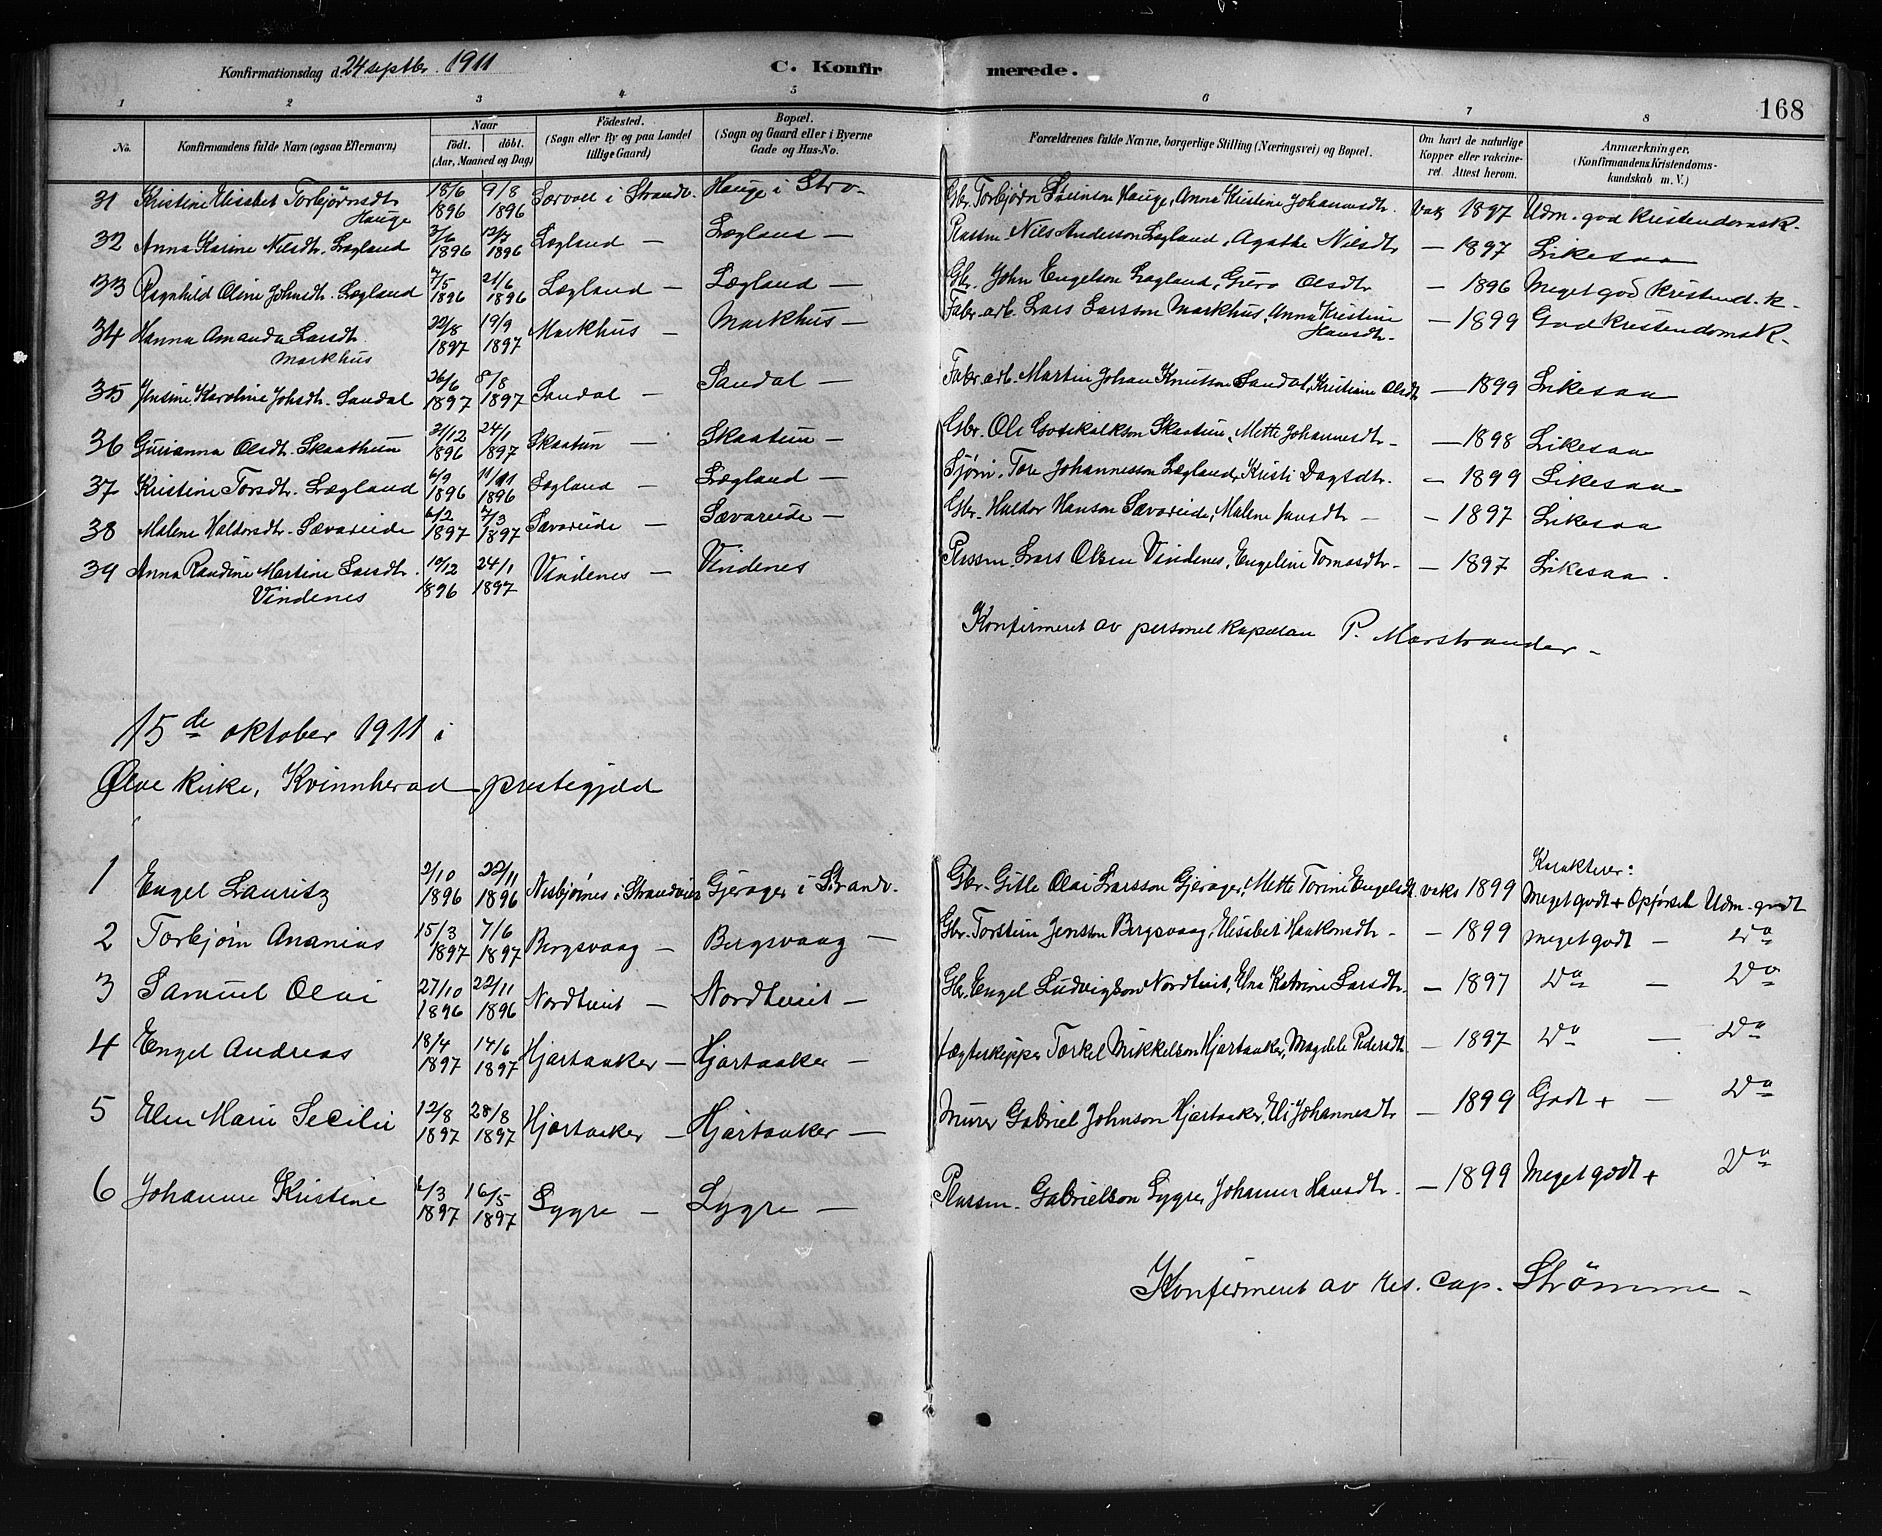 Konfirmationsdag d. 24 septbr. 1911 C. Konfirmerede. 168
1 2 3 4 5 6 7 8
No. Konfirmandens fulde Navn (ogsaa Efternavn) Naar født. døbt. (Aar, Maaned og Dag) Fødested. (Sogn eller By og paa Landet tillige Gaard) Bopæl. (Sogn og Gaard eller i Byerne Gade og Hus-No. Forældrenes fulde Navne, borgerlige Stilling (Næringsvei) og Bopæl. Om havt de naturlige Kopper eller vakcineret. Attest herom. Anmærkninger. (Konfirmandens Kristendomskundskab m. V.)
31 Kristine Elisabet Torbjørnsdt. Hauge 18/6 1896 9/8 1896 Sørvoll i Strandv. Hauge i Strv. Gbr. Torbjørn Hauge, Anna Kristine Johannesdt. Vaks 1897 Udm. god Kristendomsk.
32 Anna Karine Nilsdt. Lægland 3/6 1896 12/7 1896 Lægland — Lægland — Plassm. Nils Anderson Lægland, Agathe Nilsdt — 1897 Likesaa
33 Ragnhild Oline Johnsdt. Lægland 7/5 1896 21/6 1896 Lægland — Lægland — Gbr. John Engelson Lægland, Guro Olsdt — 1896 Meget god kristend. k.
34 Hanna Amanda Larsdt. Markhus 22/8 1897 19/9 1897 Markhus — Markhus — Fabr. arb. Lars Larsson Markhus, Anna Kristine Hansdt. — 1899 God Kristendomsk.
35 Jensine Karoline Johsdt. Sandal 26/6 1897 8/8 1897 Sandal — Sandal — Fabr. arb. Martin Johan Knutson Sandal, Kristiane Olsdt — 1899 Likesaa
36 Gurianna Olsdt. Skaathun 21/12 1896 24/1 1897 Skaatun — Skaatun — Gbr. Ole Gotskalkson Skaatun, Mette Johannesdt. — 1898 Likesaa
37 Kristine Torsdt. Lægland 6/9 1896 11/11 1896 Lægland — Lægland — Sjøm. Tore Johannesson Lægland, Kristi Dagsdt. — 1899 Likesaa
38 Malene Haldorsdt. Sævareide 6/2 1897 7/3 1897 Sævareide — Sævareide — Gbr. Haldor Hanson Sævareide, Malene Jansdt — — 1897 Likesaa
39 Anna Randine Martine Larsdt. Vindenes 19/12 1896 24/1 1897 Vindenes — Vindenes Plassm. Lars Olsen Vindenes, Engeline Tomasdt — 1897 Likesaa.
Konfirmeret av personel kapelan P. Marstrander.
15de oktober 1911 i
Ølve kirke, Kvinnherad prestegjeld
Karakterer:
1 Engel Lauritz 2/10 1896 22/11 1896 Nesbjørnes i Strandvik Gjerager i Strandv. Gbr. Gitle Olai Larsson Gjerager, Mette Torine Engelsdt. vaks 1899 Meget godt + Opførsel Udm. godt
2 Torbjørn Ananias 15/3 1897 7/6 1897 Bergsvaag — Bergsvaag — Gbr. Torstein Jensson Bergsvaag, Elisabet Haakonsdt — — 1899 Meget godt — Do
3 Samuel Olai 27/10 1896 22/11 1896 Nordtveit — Nordtveit — Gbr. Engel Ludvigson Nordtveit, Elna Katrine Larsdt. — 1897 Do — Do
4 Engel Andreas 18/4 1897 14/6 1897 Hjartaaker — Hjartaaker — Jægtskipper Tærkel Mikkelson Hjartaaker, Magdele Pedersdt. — 1897 Do — Do
5 Elen Marie Secilie 12/8 1897 28/8 1897 Hjartaaker — Hjartaaker — Murer Gabriel Johnson Hjartaaker, Eli Johannesdt — 1899 Godt + — Do
6 Johanne Kristine 6/3 1897 16/5 1897 Lygre — Lygre — Plassm. Gabrielson Lygre, Johanne Hansdt. — 1899 Meget godt + Do
Konfirmeret av res. cap. Strømme.